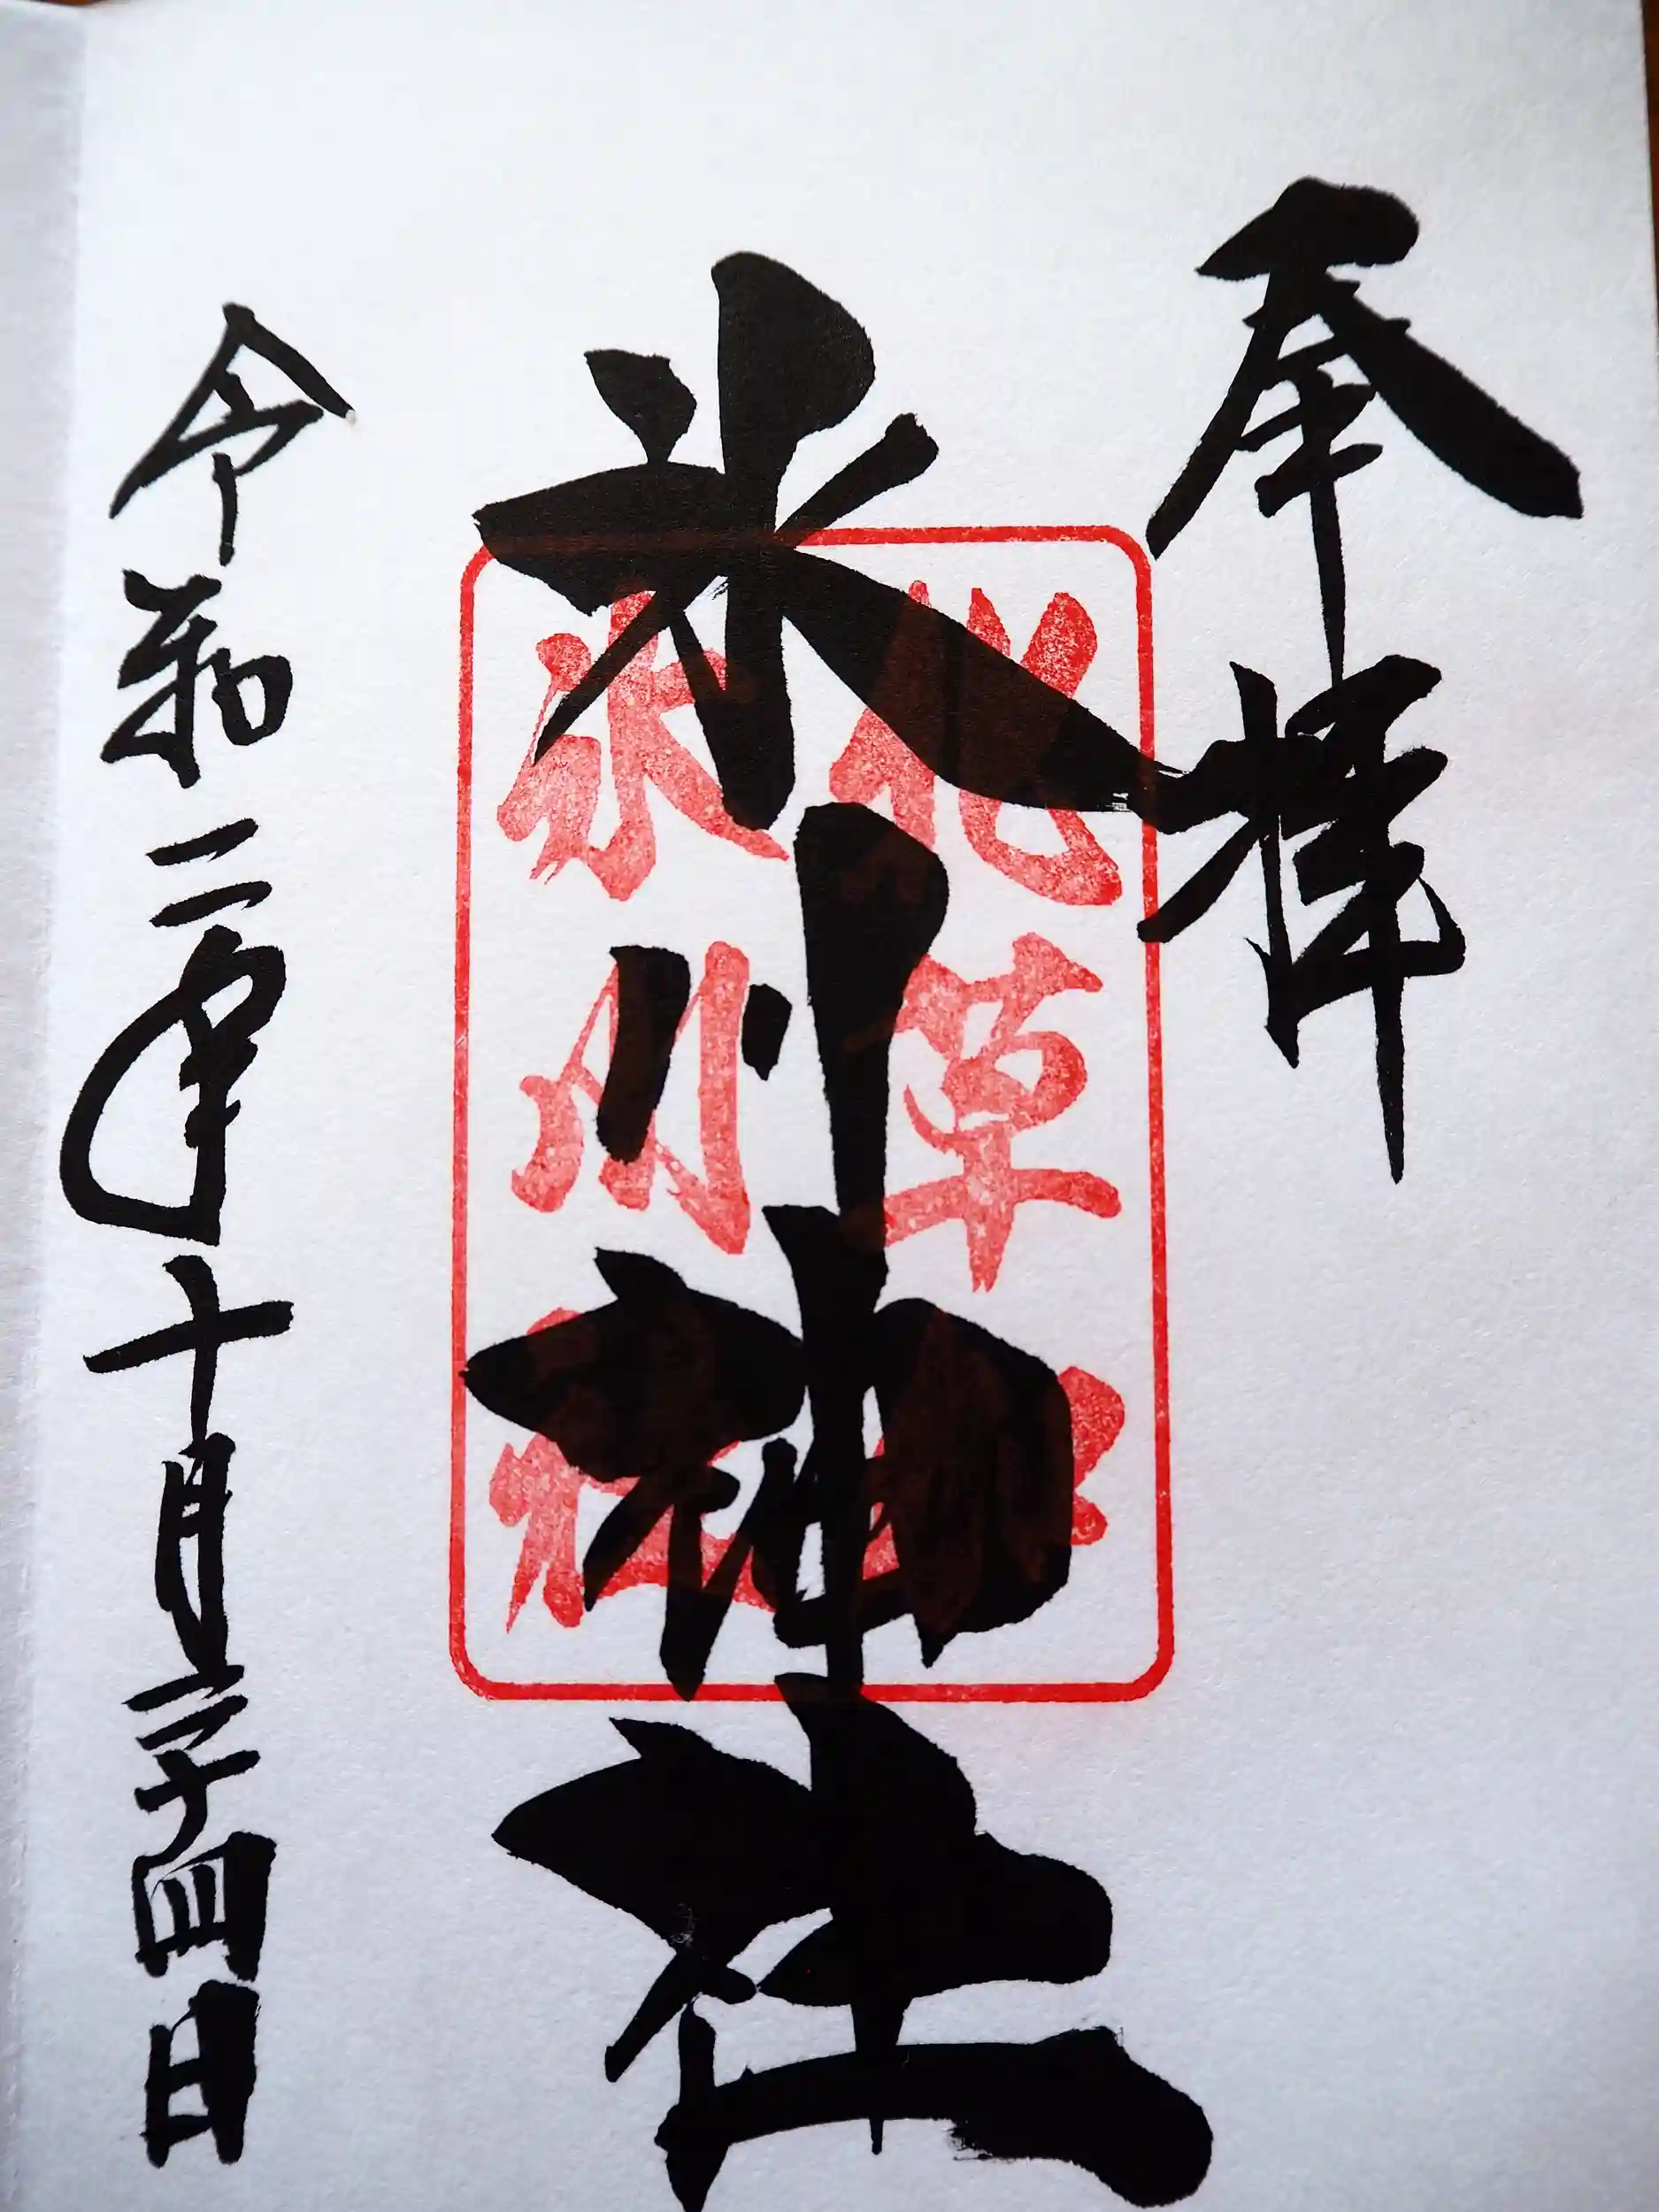 奉拝
氷川神社
北草
氷川社
令和二年十月二十四日